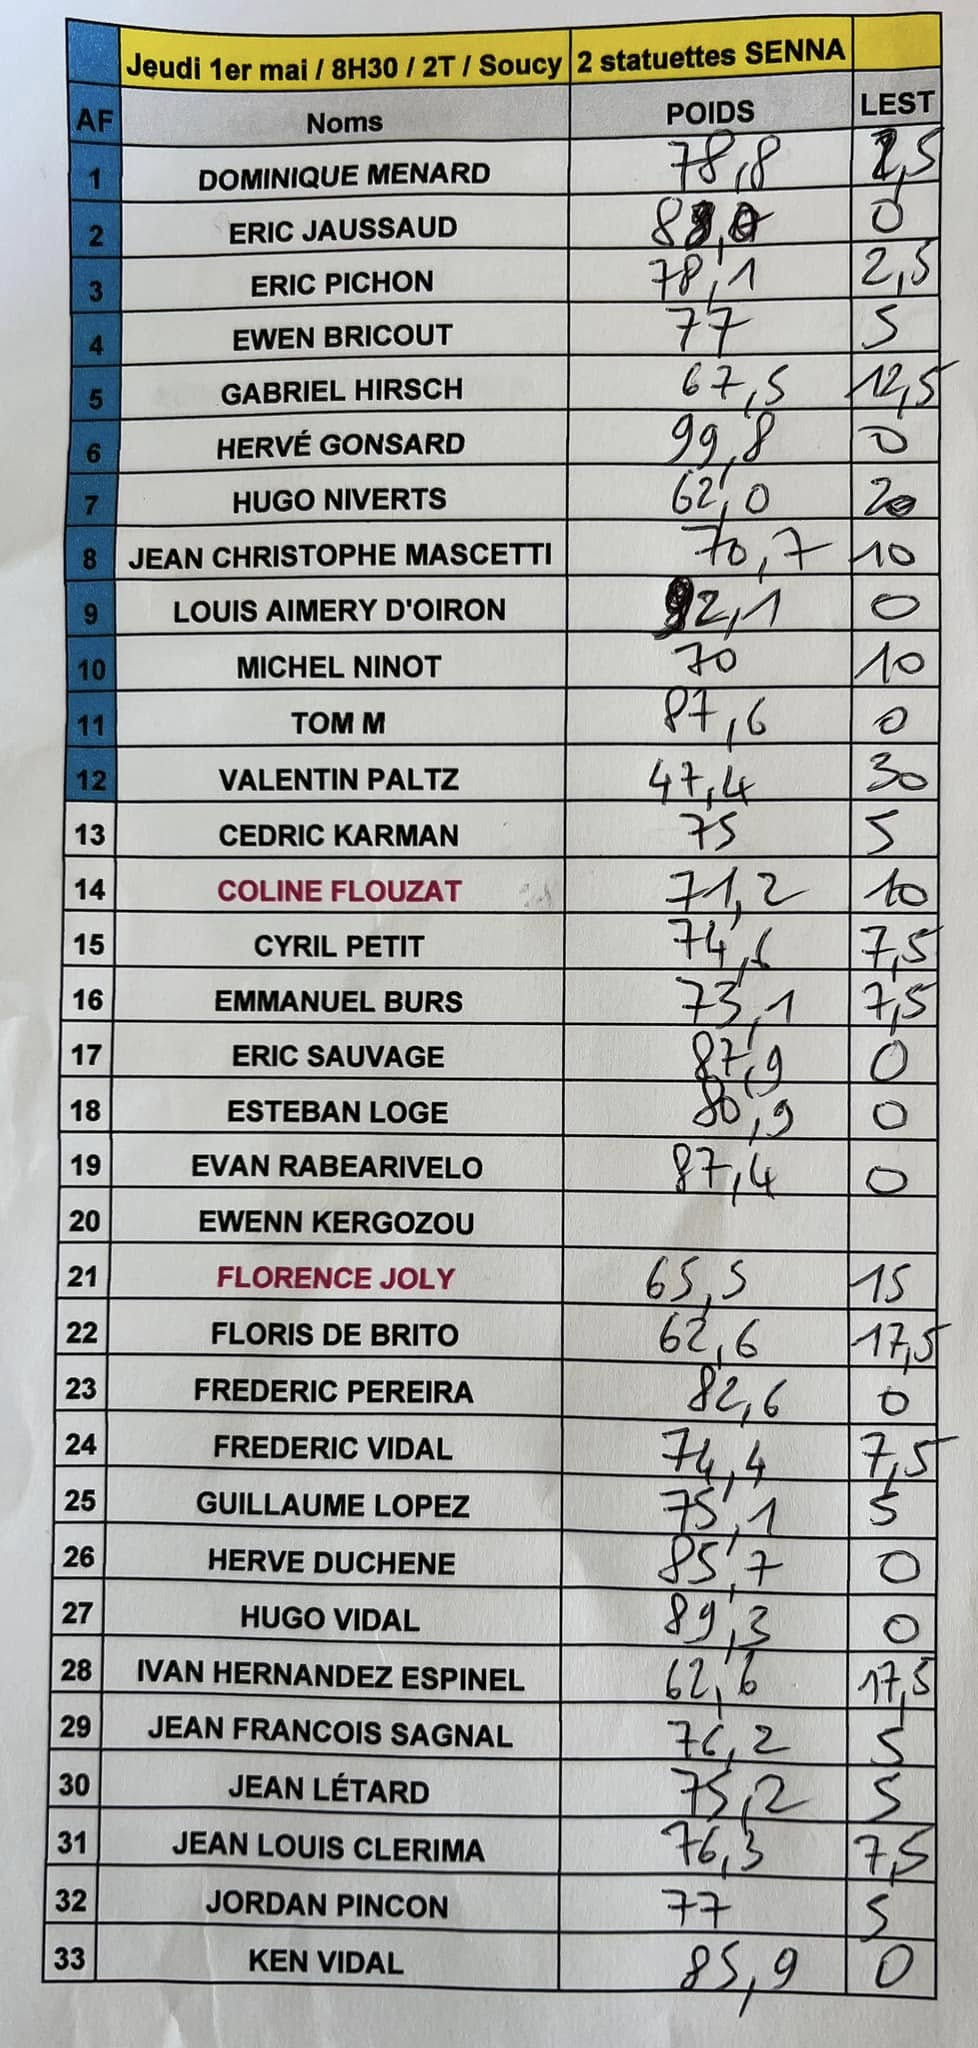 Jeudi 1er mai / 8H30 / 2T / Soucy 2 statuettes SENNA
AF Noms POIDS LEST
1 DOMINIQUE MENARD 78,8 2,5
2 ERIC JAUSSAUD 0
3 ERIC PICHON 78,1 2,5
4 EWEN BRICOUT 77 5
5 GABRIEL HIRSCH 67,5 12,5
6 HERVÉ GONSARD 99,8 0
7 HUGO NIVERTS 62,0 20
8 JEAN CHRISTOPHE MASCETTI 70,7 10
9 LOUIS AIMERY D'OIRON 92,1 0
10 MICHEL NINOT 70 10
11 TOM M 87,6 0
12 VALENTIN PALTZ 47,4 30
13 CEDRIC KARMAN 75 5
14 COLINE FLOUZAT 71,2 10
15 CYRIL PETIT 74,6 7,5
16 EMMANUEL BURS 73,1 7,5
17 ERIC SAUVAGE 87,9 0
18 ESTEBAN LOGE 80,9 0
19 EVAN RABEARIVELO 87,4 0
20 EWENN KERGOZOU
21 FLORENCE JOLY 65,5 15
22 FLORIS DE BRITO 62,6 17,5
23 FREDERIC PEREIRA 82,6 0
24 FREDERIC VIDAL 74,4 7,5
25 GUILLAUME LOPEZ 75,1 5
26 HERVE DUCHENE 85,7 0
27 HUGO VIDAL 89,3 0
28 IVAN HERNANDEZ ESPINEL 62,6 17,5
29 JEAN FRANCOIS SAGNAL 76,2 5
30 JEAN LÉTARD 75,2 5
31 JEAN LOUIS CLERIMA 76,3 7,5
32 JORDAN PINCON 77 5
33 KEN VIDAL 85,9 0